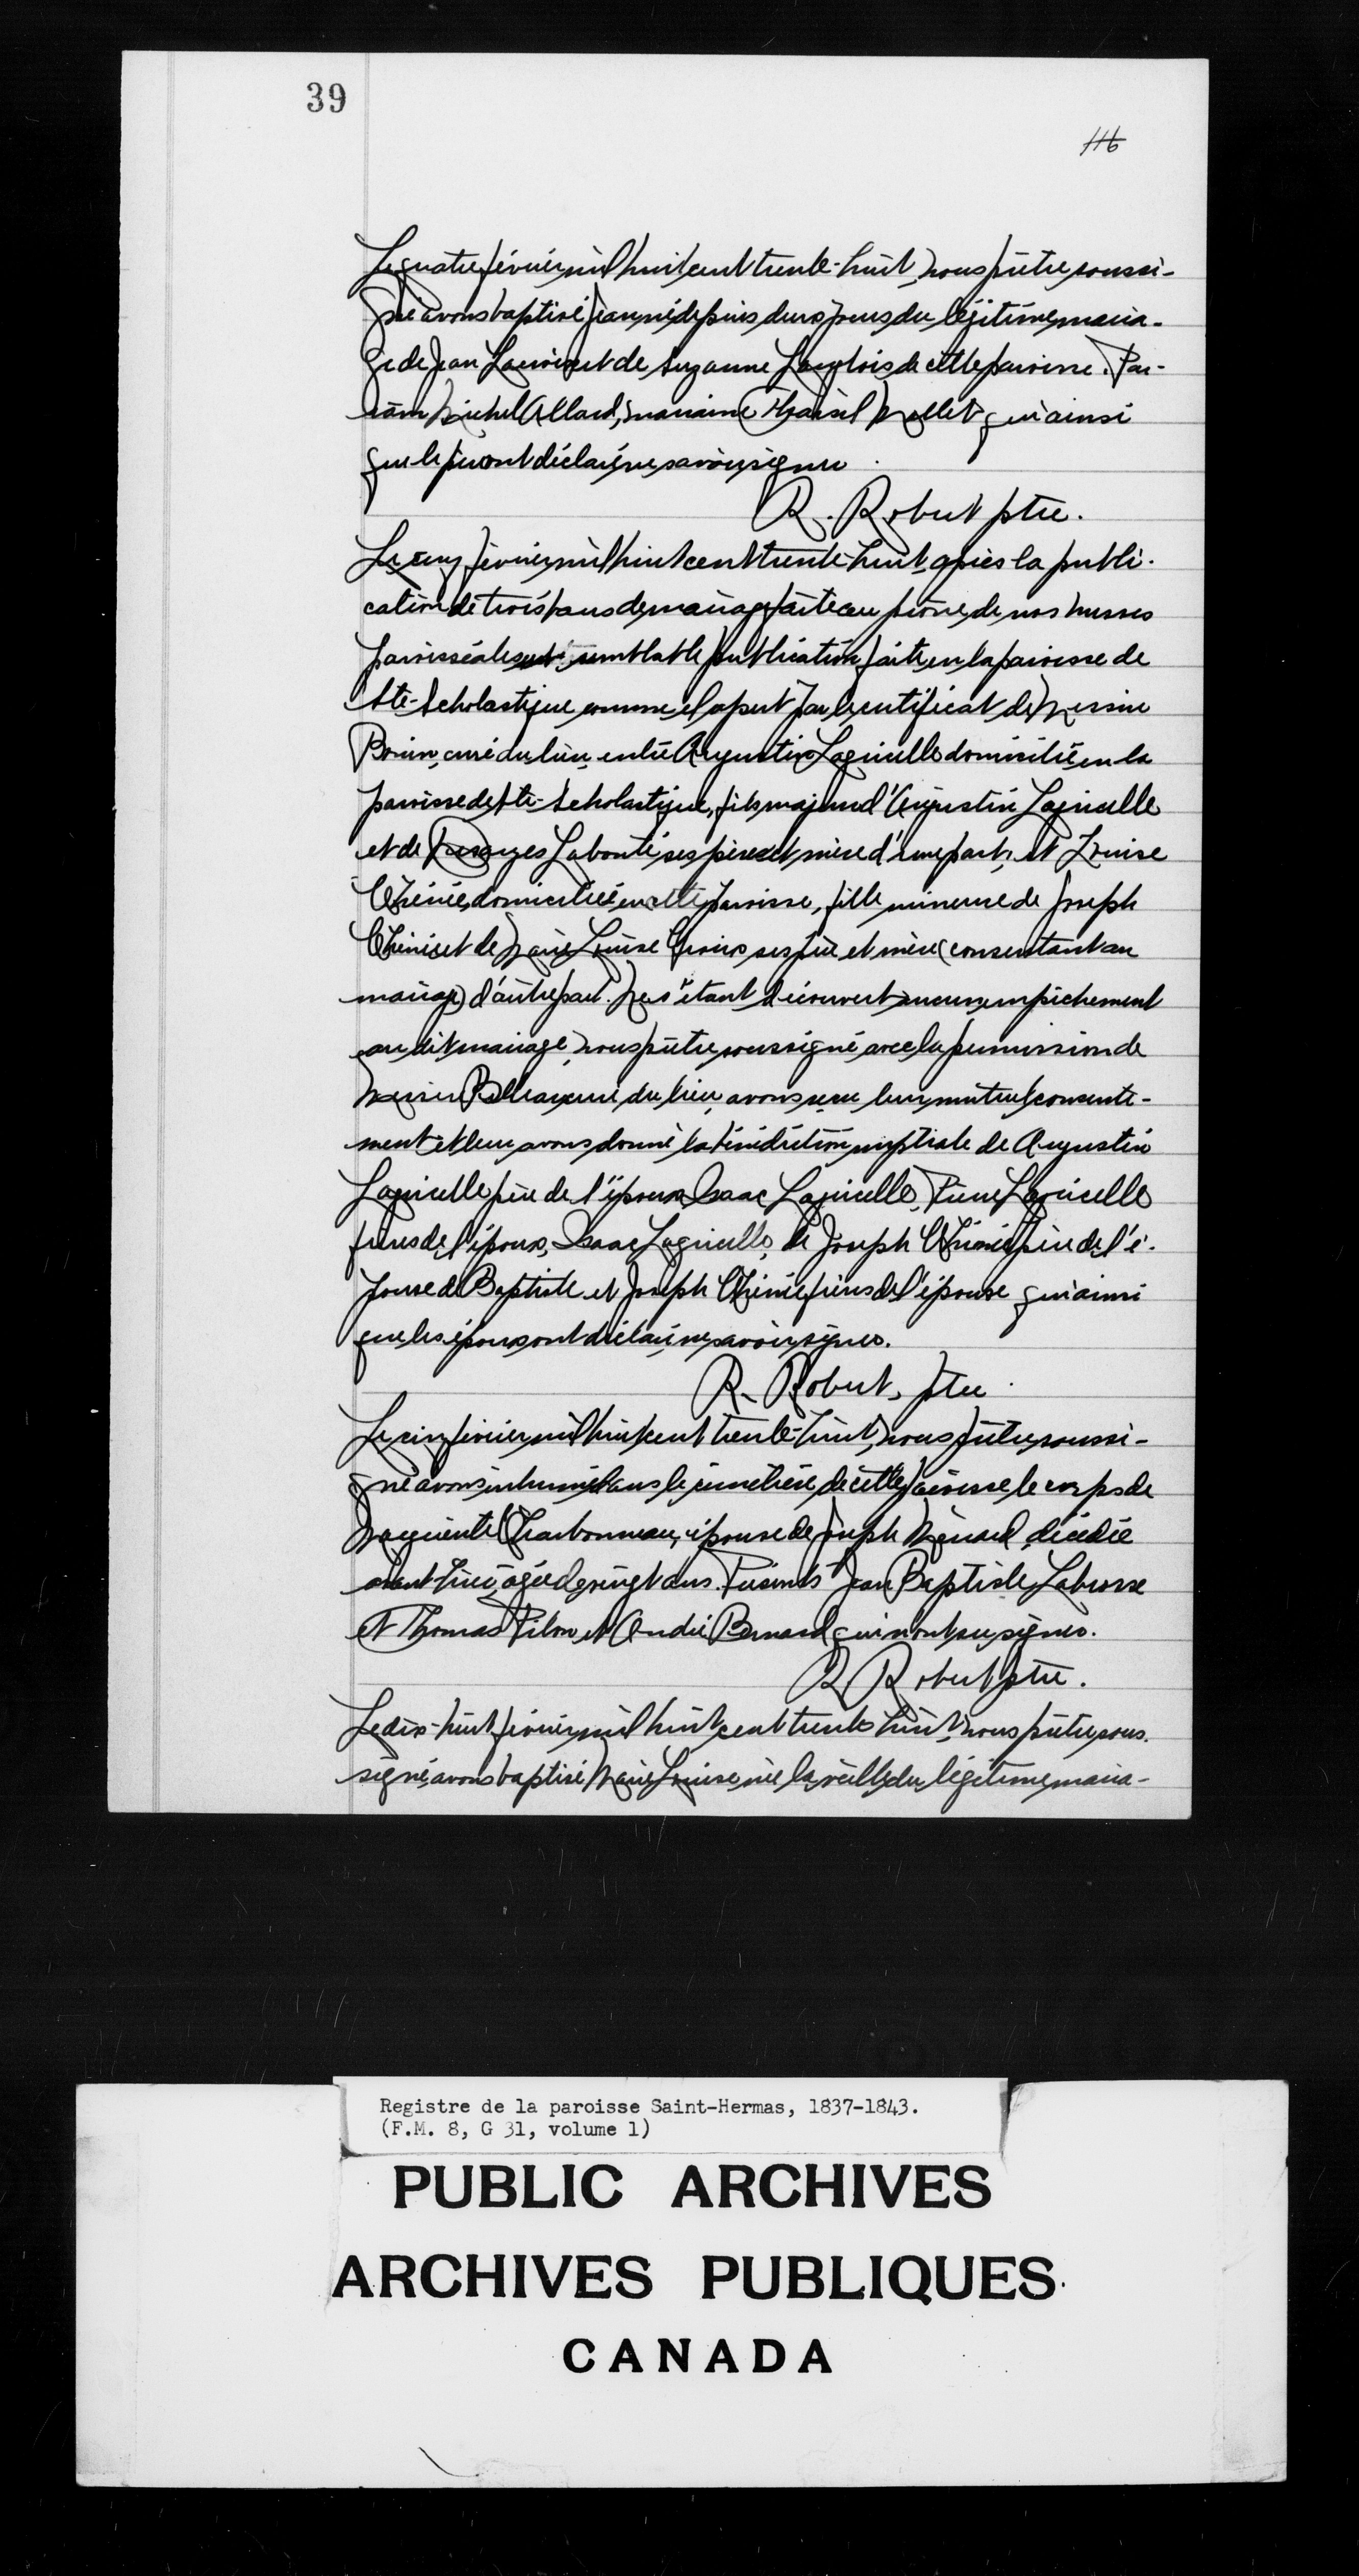 39
116
Le quatre février mil huit cent trente-huit, nous prêtre soussi-
gné avons baptisé Jean né depuis deux jours du légitime maria-
ge de Jean et de Suzanne Langlois de cette paroisse. Par-
rain Michel Allard, marraine qui ainsi
que le père ont déclaré ne savoir signer.
R. Robert ptre.
Le cinq février mil huit cent trente-huit, après la publi-
cation de trois bans de mariage faite au prône de nos messes
paroissiales semblable publication faite en la paroisse de
Ste-Scholastique comme il apert par le certificat de Messire
Bonin, curé du lieu, entre Augustin Lagricelle domicilié en la
paroisse de Ste-Scholastique, fils majeur d'Augustin Lagricelle
et de Labonté ses père et mère d'une part, et Louise
Chénié, domiciliée en cette paroisse, fille mineure de Joseph
Chénié et de Marie Louise ses père et mère (consentant au
mariage) d'autre part. Ne s'étant découvert aucun empêchement
au dit mariage, nous prêtre soussigné avec la permission de
Messire curé du lieu, avons reçu leur mutuel consente-
ment et leur avons donné la bénédiction nuptiale de Augustin
Lagricelle père de l'époux, Isaac Lagricelle, Pierre Lagricelle
frères de l'époux, Isaac Lagricelle, de Joseph Chénié père de l'é-
pouse de Baptiste et Joseph Chénié frères de l'épouse qui ainsi
que les époux ont déclaré ne savoir signer.
R. Robert, ptre.
Le cinq février mil huit cent trente-huit, nous prêtre soussi-
gné avons inhumé dans le cimetière de cette paroisse le corps de
Marguerite Charbonneau, épouse de Joseph Ménard, décédée
avant hier, âgée de vingt ans. Présents Jean Baptiste Labrosse
et Thomas Pilon et André Bernard qui n'ont su signer.
R. Robert ptre.
Le dix-huit février mil huit cent trente huit, nous prêtre sous-
signé avons baptisé Marie Louise née la veille du légitime maria-
Registre de la paroisse Saint-Hermas, 1837-1843.
(F.M. 8, G 31, volume 1)
PUBLIC ARCHIVES
ARCHIVES PUBLIQUES
CANADA